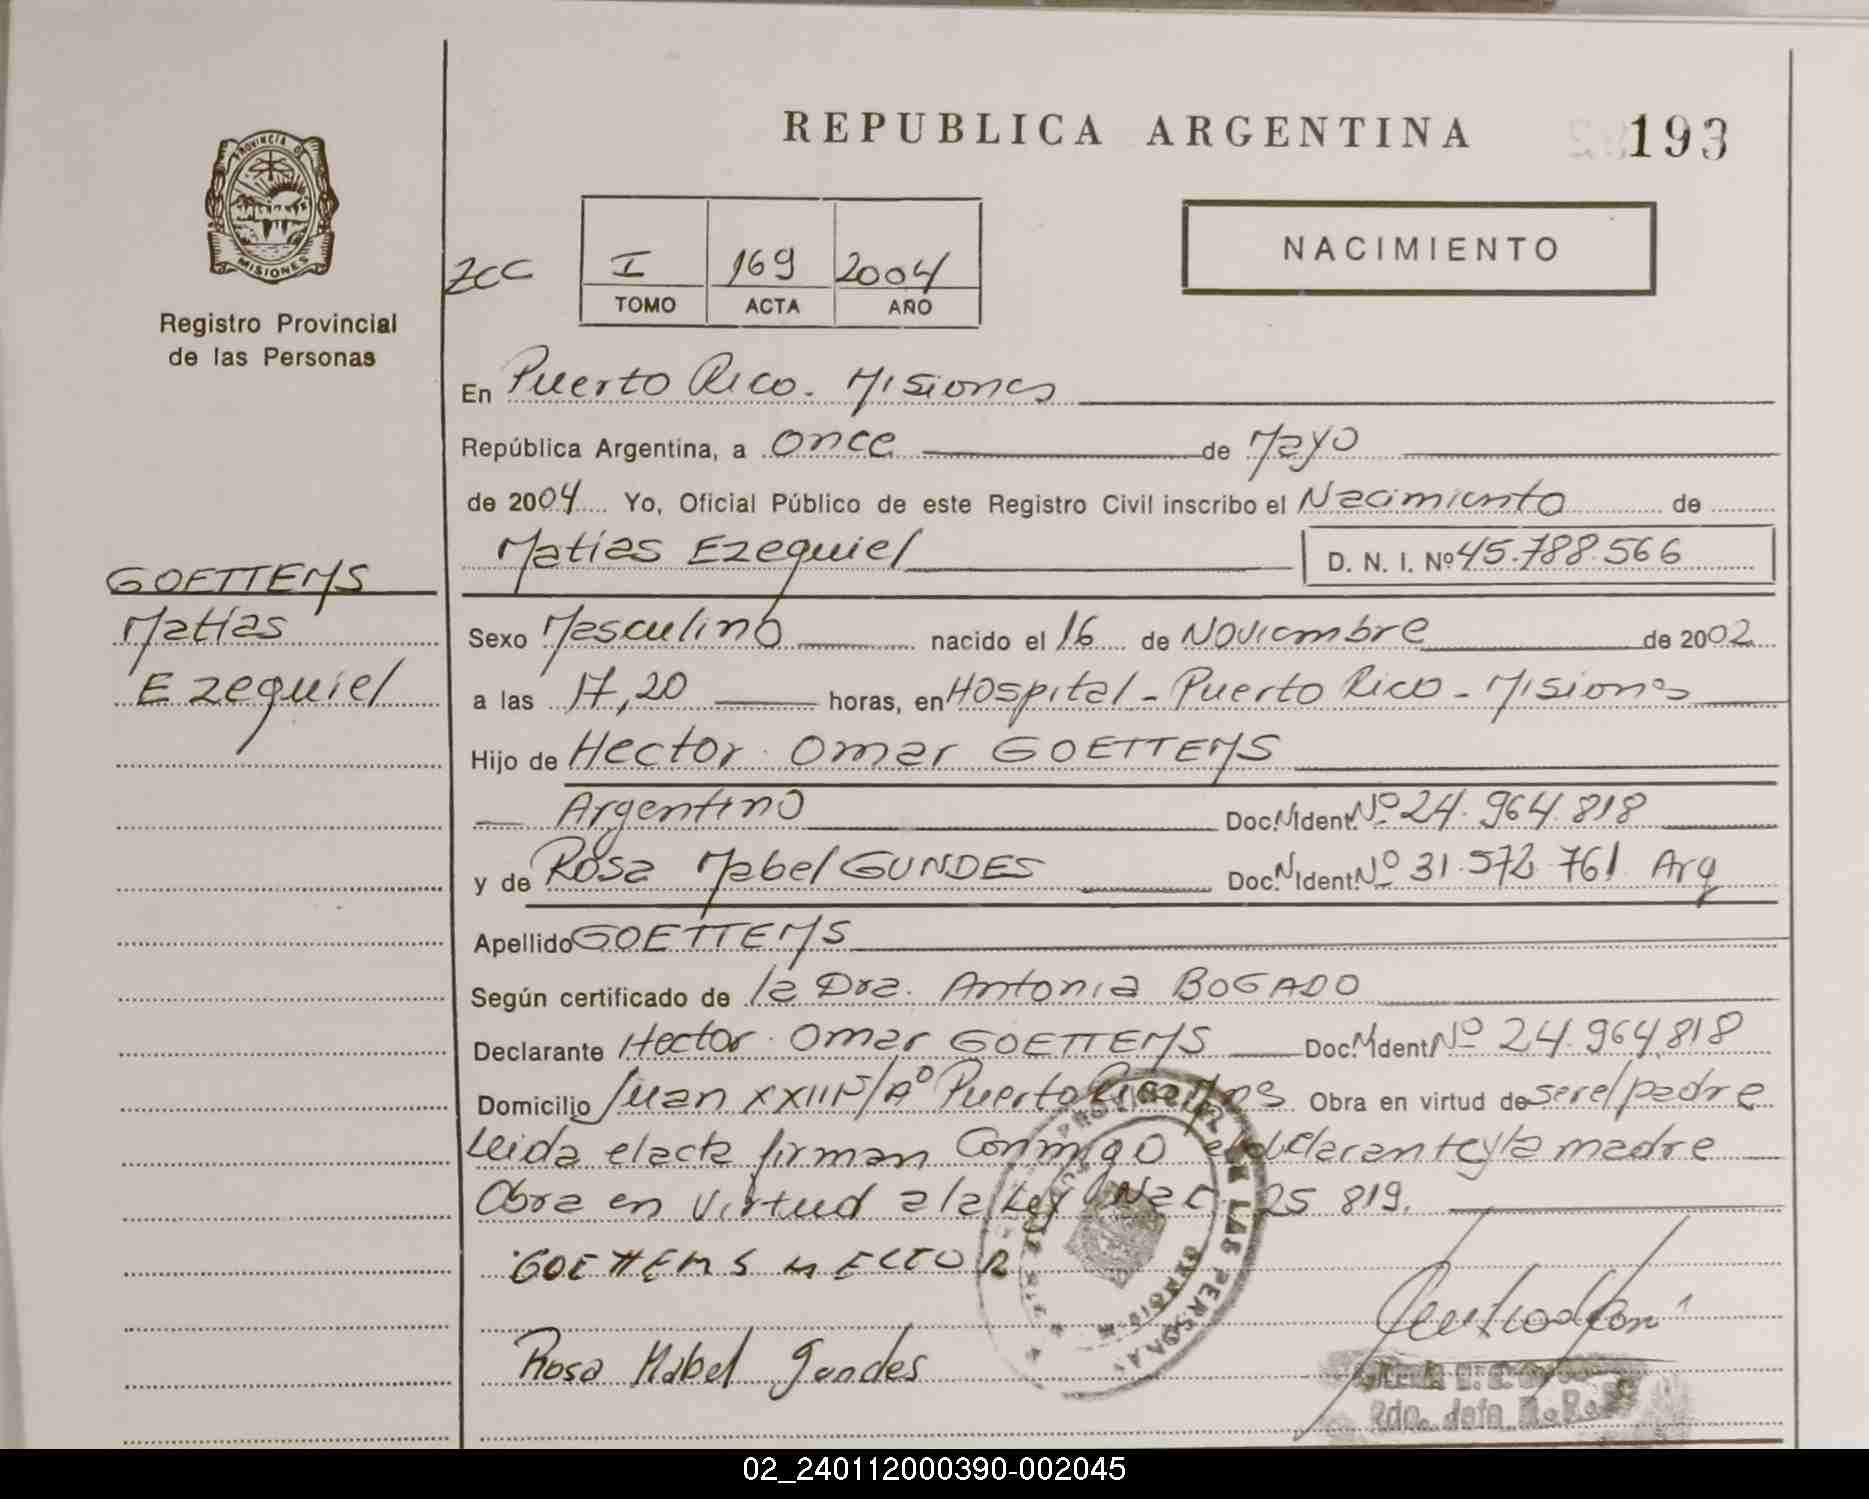 REPUBLICA ARGENTINA
193
PROVINCIA DE
MISIONES
Registro Provincial
de las Personas
ZCC
I 169 2004
TOMO ACTA AÑO
NACIMIENTO
En Puerto Rico. Misiones
República Argentina, a once de Mayo
de 2004 Yo, Oficial Público de este Registro Civil inscribo el Nacimiento de
Matias Ezequiel D. N. I. Nº 45.788.566
GOETTEMS
Matias
Ezequiel
Sexo Masculino nacido el 16 de Noviembre de 2002
a las 17,20 horas, en Hospital - Puerto Rico - Misiones
Hijo de Hector Omar GOETTEMS
Argentino Doc. N Ident. Nº 24.964.818
y de Rosa Mabel GUNDES Doc. N Ident. Nº 31.572.761 Arg
Apellido GOETTEMS
Según certificado de la Dra. Antonia BOGADO
Declarante Hector Omar GOETTEMS Doc. N Ident Nº 24.964.818
Domicilio Juan XXIII S/Aº Puerto Rico Mns Obra en virtud de ser el padre
Leida el acta firman Conmigo el declarante y la madre
Obra en Virtud a la Ley Nac. 25 819.
GOETTEMS HECTOR
Rosa Mabel Gundes
DE LAS PERSONAS
MISIONES
02_240112000390-002045